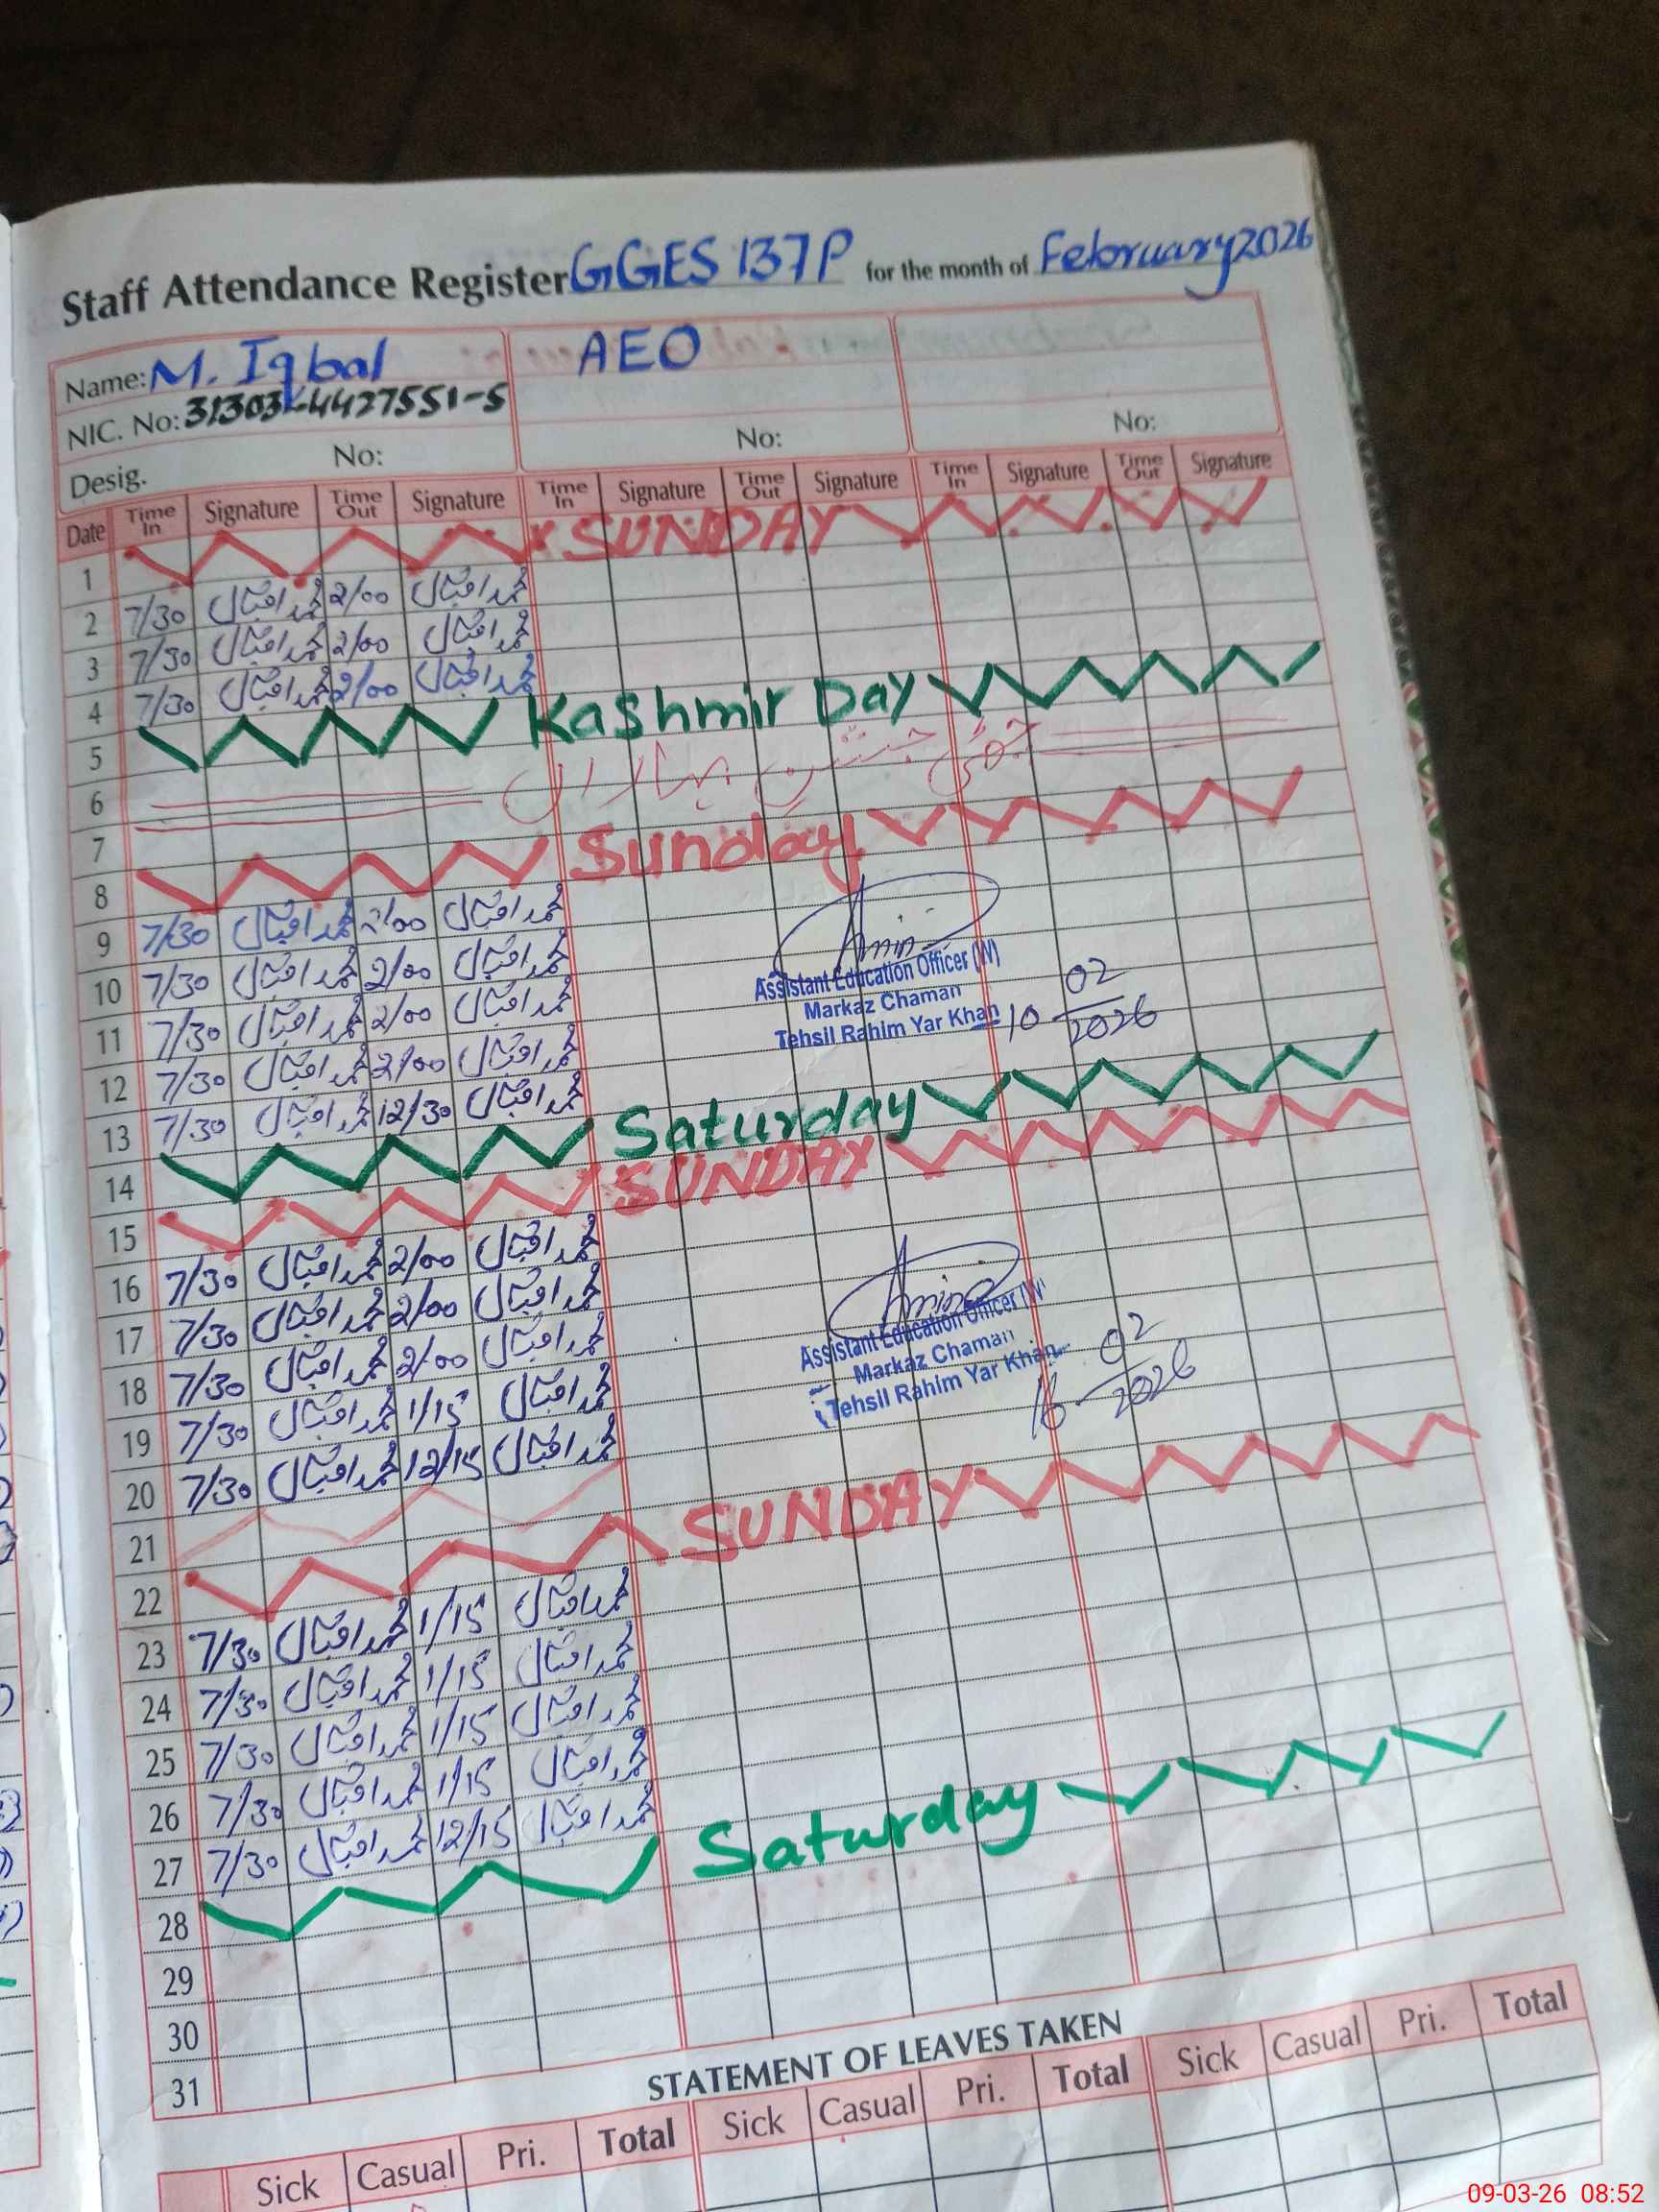 Staff Attendance Register GGES 137P for the month of February 2026
Name: M. Iqbal AEO
NIC. No: 31303-4427551-5
Desig. No: No: No:
Date Time In Signature Time Out Signature Time In Signature Time Out Signature Time In Signature Time Out Signature
1 SUNDAY
2 7/30 محمد اقبال 2/00 محمد اقبال
3 7/30 محمد اقبال 2/00 محمد اقبال
4 7/30 محمد اقبال 2/00 محمد اقبال
5 Kashmir Day
6 چھٹی جشن بہاراں
7
8 Sunday
9 7/30 محمد اقبال 2/00 محمد اقبال
10 7/30 محمد اقبال 2/00 محمد اقبال
11 7/30 محمد اقبال 2/00 محمد اقبال
12 7/30 محمد اقبال 2/00 محمد اقبال
13 7/30 محمد اقبال 12/30 محمد اقبال
Amin
Assistant Education Officer (W)
Markaz Chaman
Tehsil Rahim Yar Khan 10 02/2026
14 Saturday
15 SUNDAY
16 7/30 محمد اقبال 2/00 محمد اقبال
17 7/30 محمد اقبال 2/00 محمد اقبال
18 7/30 محمد اقبال 2/00 محمد اقبال
19 7/30 محمد اقبال 1/15 محمد اقبال
20 7/30 محمد اقبال 12/15 محمد اقبال
Assistant Education Officer (W)
Markaz Chaman
Tehsil Rahim Yar Khan 16 02/2026
21
22 SUNDAY
23 7/30 محمد اقبال 1/15 محمد اقبال
24 7/30 محمد اقبال 1/15 محمد اقبال
25 7/30 محمد اقبال 1/15 محمد اقبال
26 7/30 محمد اقبال 1/15 محمد اقبال
27 7/30 محمد اقبال 12/15 محمد اقبال
28 Saturday
29
30
31
STATEMENT OF LEAVES TAKEN
Sick Casual Pri. Total Sick Casual Pri. Total Sick Casual Pri. Total
09-03-26 08:52